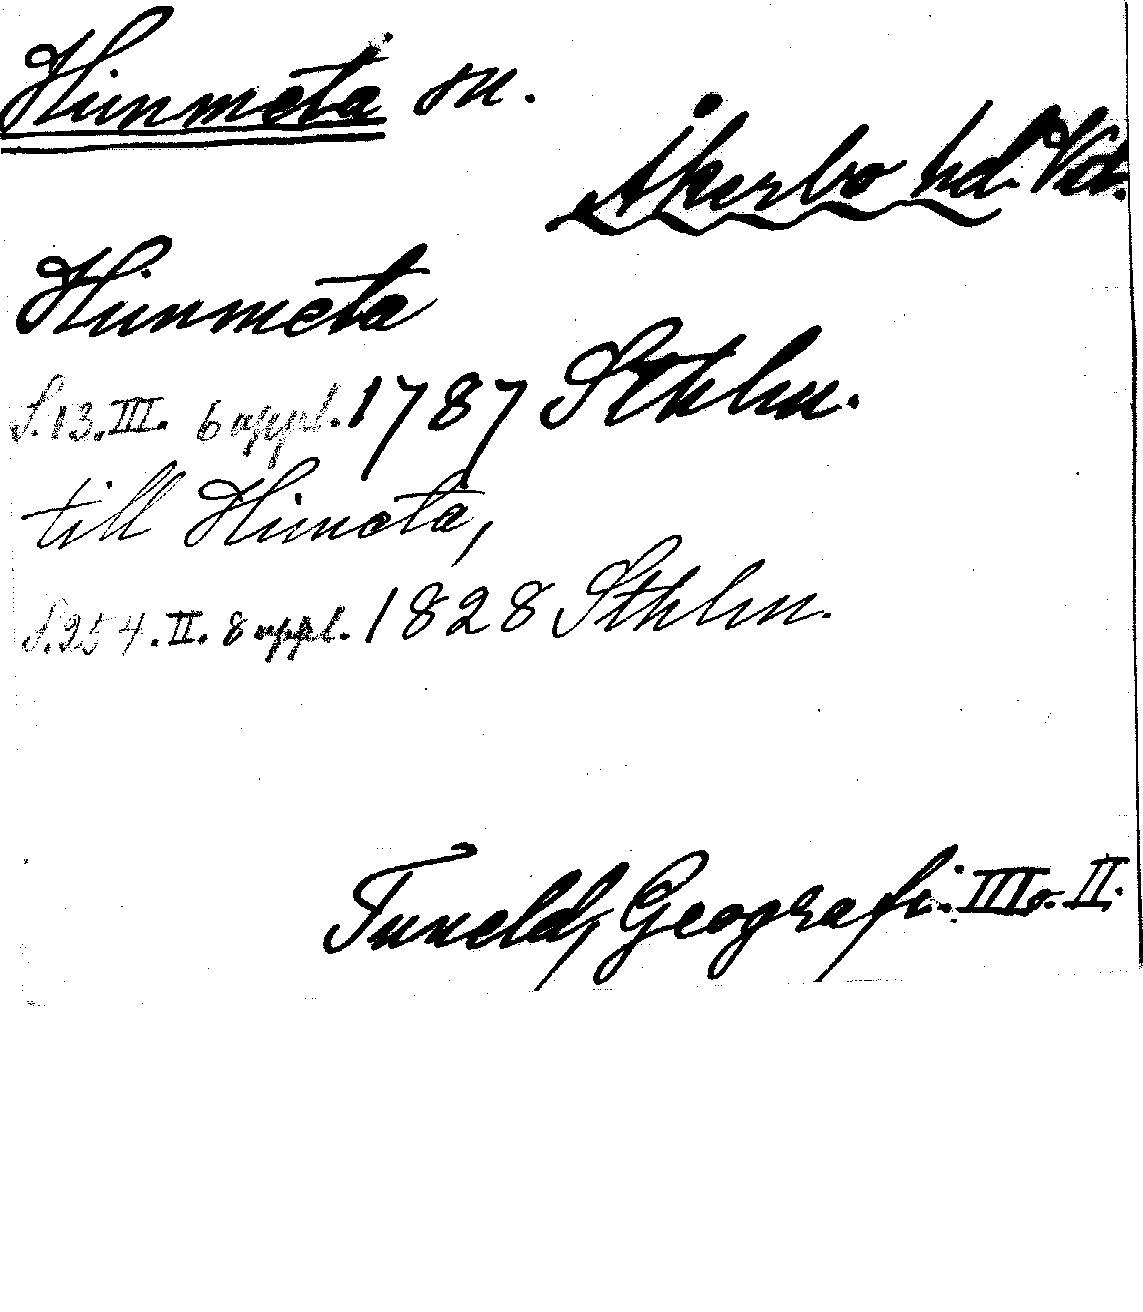 Hunmeta sn.
Åkerbo hd. Vstl.
Hunmeta
S. 13. III. 6 uppl. 1787 Sthlm.
till Himeta,
S. 254. II. 8 uppl. 1828 Sthlm.
Tuneld, Geografi. III o. II.